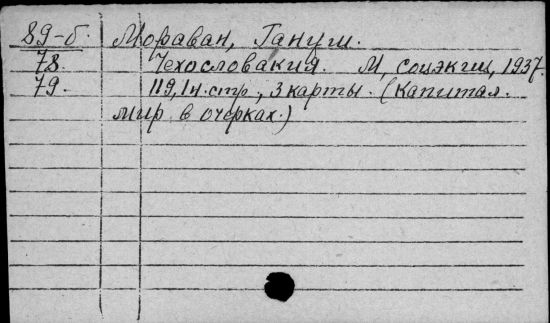 89-б. Мораван, Гануш.
78. Чехословакия. М, соцэкгиз, 1937.
79. 119, 1н. стр., 3 карты. (Капитал.
мир в очерках.)